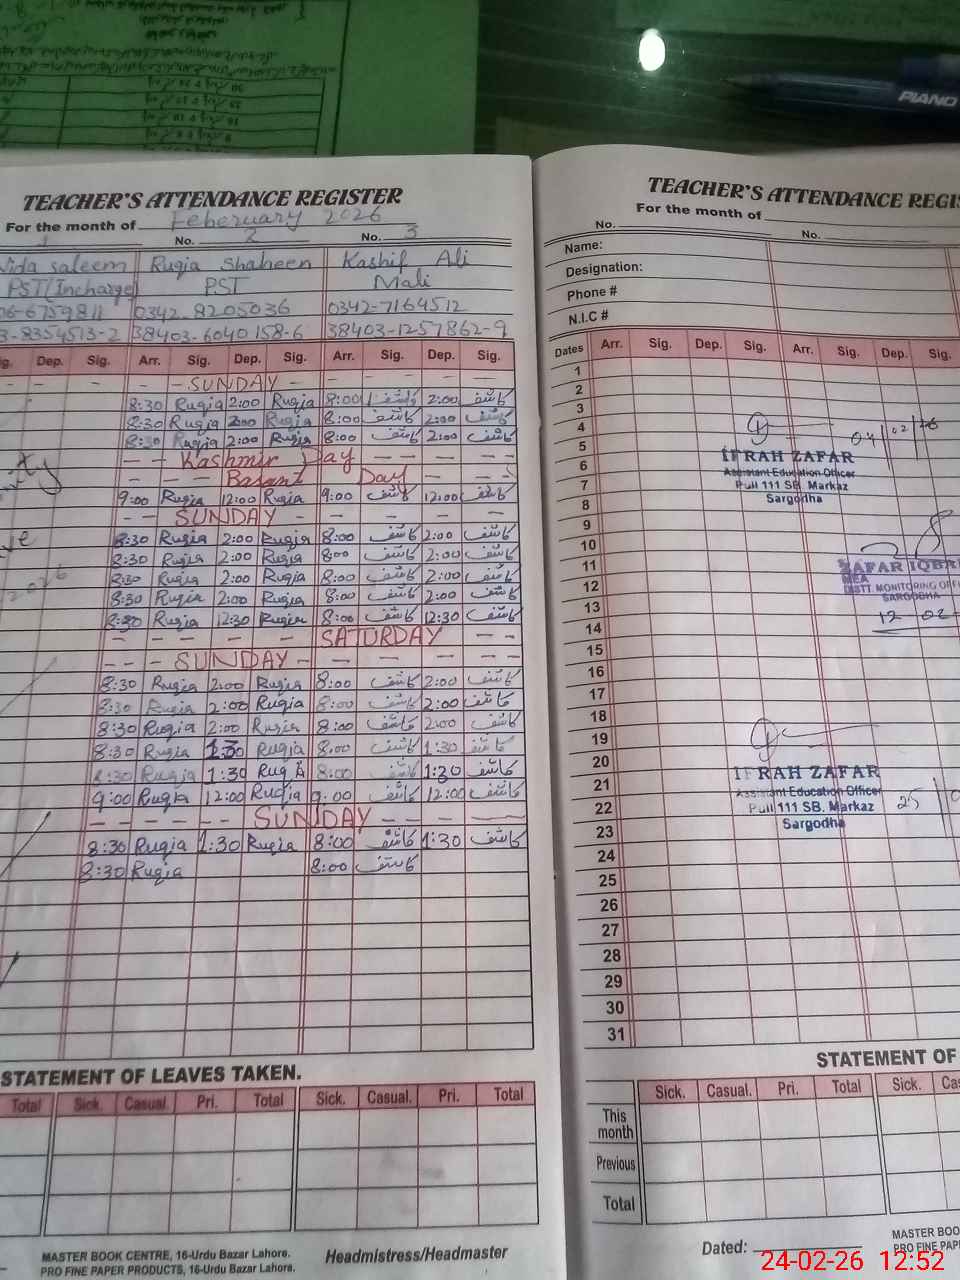 TEACHER'S ATTENDANCE REGISTER
For the month of Feberuary 2026
1 No. 2 No. 3
Nida saleem Ruqia Shaheen Kashif Ali
PST(Incharge) PST Mali
06-6759811 0342-8205036 0342-7164512
3-8354513-2 38403-6040158-6 38403-1257862-9
Dep. Sig. Arr. Sig. Dep. Sig. Arr. Sig. Dep. Sig.
- - - - - SUNDAY - - - - -
8:30 Ruqia 2:00 Ruqia 8:00 کاشف 2:00 کاشف
8:30 Ruqia 2:00 Ruqia 8:00 کاشف 2:00 کاشف
8:30 Ruqia 2:00 Ruqia 8:00 کاشف 2:00 کاشف
- - Kashmir Day - - - -
- - - - Basant Day - - -
9:00 Ruqia 12:00 Ruqia 9:00 کاشف 12:00 کاشف
- - SUNDAY - - - - -
8:30 Ruqia 2:00 Ruqia 8:00 کاشف 2:00 کاشف
8:30 Ruqia 2:00 Ruqia 8:00 کاشف 2:00 کاشف
8:30 Ruqia 2:00 Ruqia 8:00 کاشف 2:00 کاشف
8:30 Ruqia 2:00 Ruqia 8:00 کاشف 2:00 کاشف
8:30 Ruqia 12:30 Ruqia 8:00 کاشف 12:30 کاشف
- - - - - SATURDAY - -
- - - SUNDAY - - - - - -
8:30 Ruqia 2:00 Ruqia 8:00 کاشف 2:00 کاشف
8:30 Ruqia 2:00 Ruqia 8:00 کاشف 2:00 کاشف
8:30 Ruqia 2:00 Ruqia 8:00 کاشف 2:00 کاشف
8:30 Ruqia 1:30 Ruqia 8:00 کاشف 1:30 کاشف
8:30 Ruqia 1:30 Ruqia 8:00 کاشف 1:30 کاشف
9:00 Ruqia 12:00 Ruqia 9:00 کاشف 12:00 کاشف
- - - - - SUNDAY - - - -
8:30 Ruqia 1:30 Ruqia 8:00 کاشف 1:30 کاشف
8:30 Ruqia 8:00 کاشف
STATEMENT OF LEAVES TAKEN.
Total Sick. Casual. Pri. Total Sick. Casual. Pri. Total
MASTER BOOK CENTRE, 16-Urdu Bazar Lahore.
PRO FINE PAPER PRODUCTS, 16-Urdu Bazar Lahore.
Headmistress/Headmaster
TEACHER'S ATTENDANCE REGIS
For the month of
No. No.
Name:
Designation:
Phone #
N.I.C #
Dates Arr. Sig. Dep. Sig. Arr. Sig. Dep. Sig.
1
2
3
4
5
6
7
8
9
10
11
12
13
14
15
16
17
18
19
20
21
22
23
24
25
26
27
28
29
30
31
04/02/26
IFRAH ZAFAR
Assistant Education Officer
Pull 111 SB. Markaz
Sargodha
ZAFAR IQBA
MEA
DISTT. MONITORING OFF
SARGODHA
12-02-
IFRAH ZAFAR
Assistant Education Officer
Pull 111 SB. Markaz
Sargodha
STATEMENT OF
Sick. Casual. Pri. Total Sick. Cas
This month
Previous
Total
Dated:
MASTER BOO
PRO FINE PAP
PIANO
24-02-26 12:52